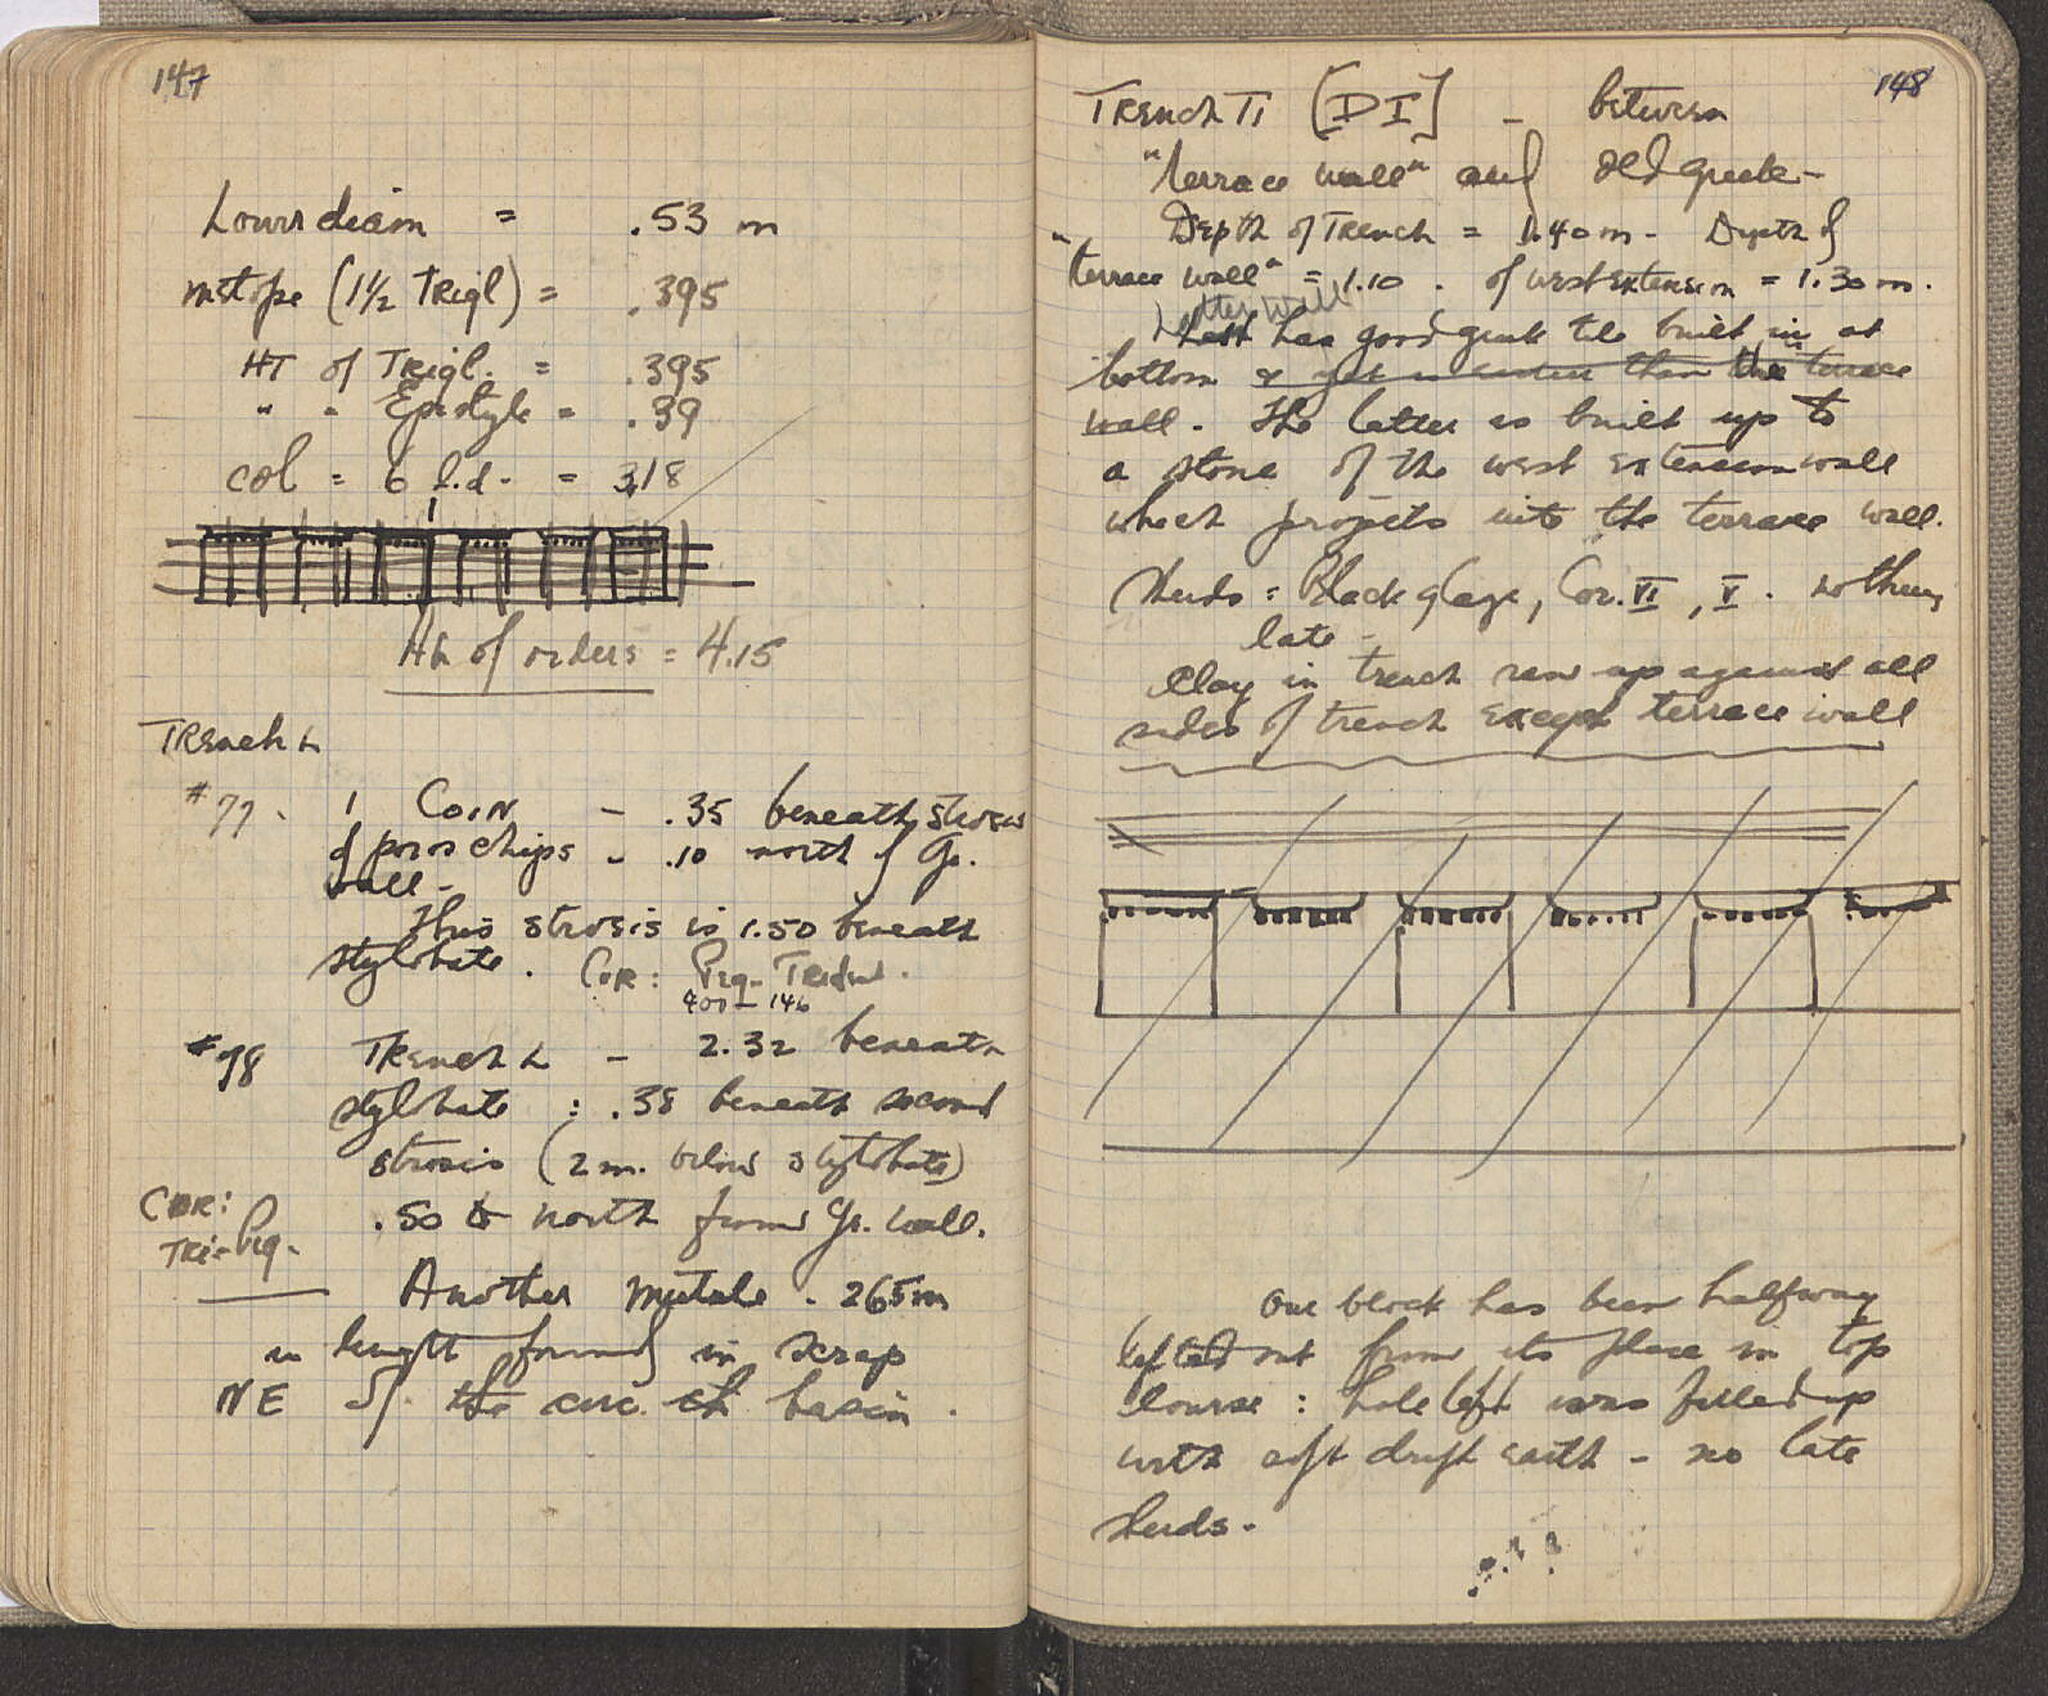 147
Lower diam = .53 m
metope (1½ Trigl) = .395
HT of Trigl. = .395
" " Epistyle = .39
col = 6 l.d. = 3.18
Ht of orders = 4.15
Trench L
#77. 1 Coin - .35 beneath strosis
of poros chips - .10 north of Gr.
wall -
This strosis is 1.50 beneath
stylobate. Cor: Peg-Trident.
400-146
#78 Trench L - 2.32 beneath
stylobate : .38 beneath second
strosis (2 m. below stylobate)
.50 to north from Gr. wall.
Cor:
Tri-Peg-
Another mutule .265m
in length found in scrap
NE of the circ. ch. basin.
148
Trench Ti [DI] - between
"terrace wall" and old Greek -
Depth of Trench = 1.40 m - Depth of
"terrace wall" = 1.10. of west extension = 1.30 m.
Latter wall
Last has good Greek tile built in at
bottom & yet is than the terrace
wall. The latter is built up to
a stone of the west extension wall
which projects into the terrace wall.
Sherds: Black glaze, Cor. VI, V. nothing
late -
Clay in trench ran up against all
sides of trench except terrace wall
One block has been halfway
lifted out from its place in top
course : hole left was filled up
with soft drift earth - no late
sherds -